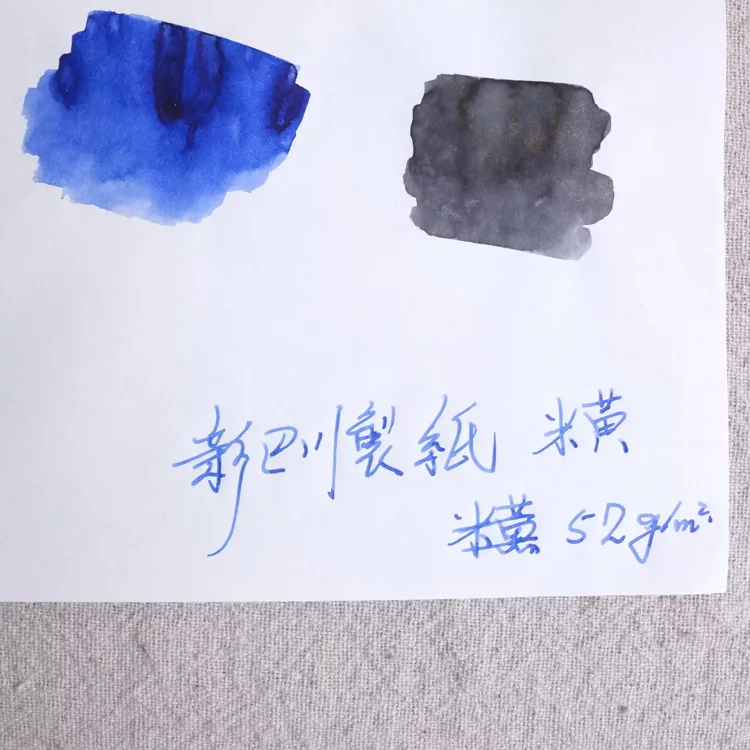 新巴川製紙 米黄
米黄 52g/m²